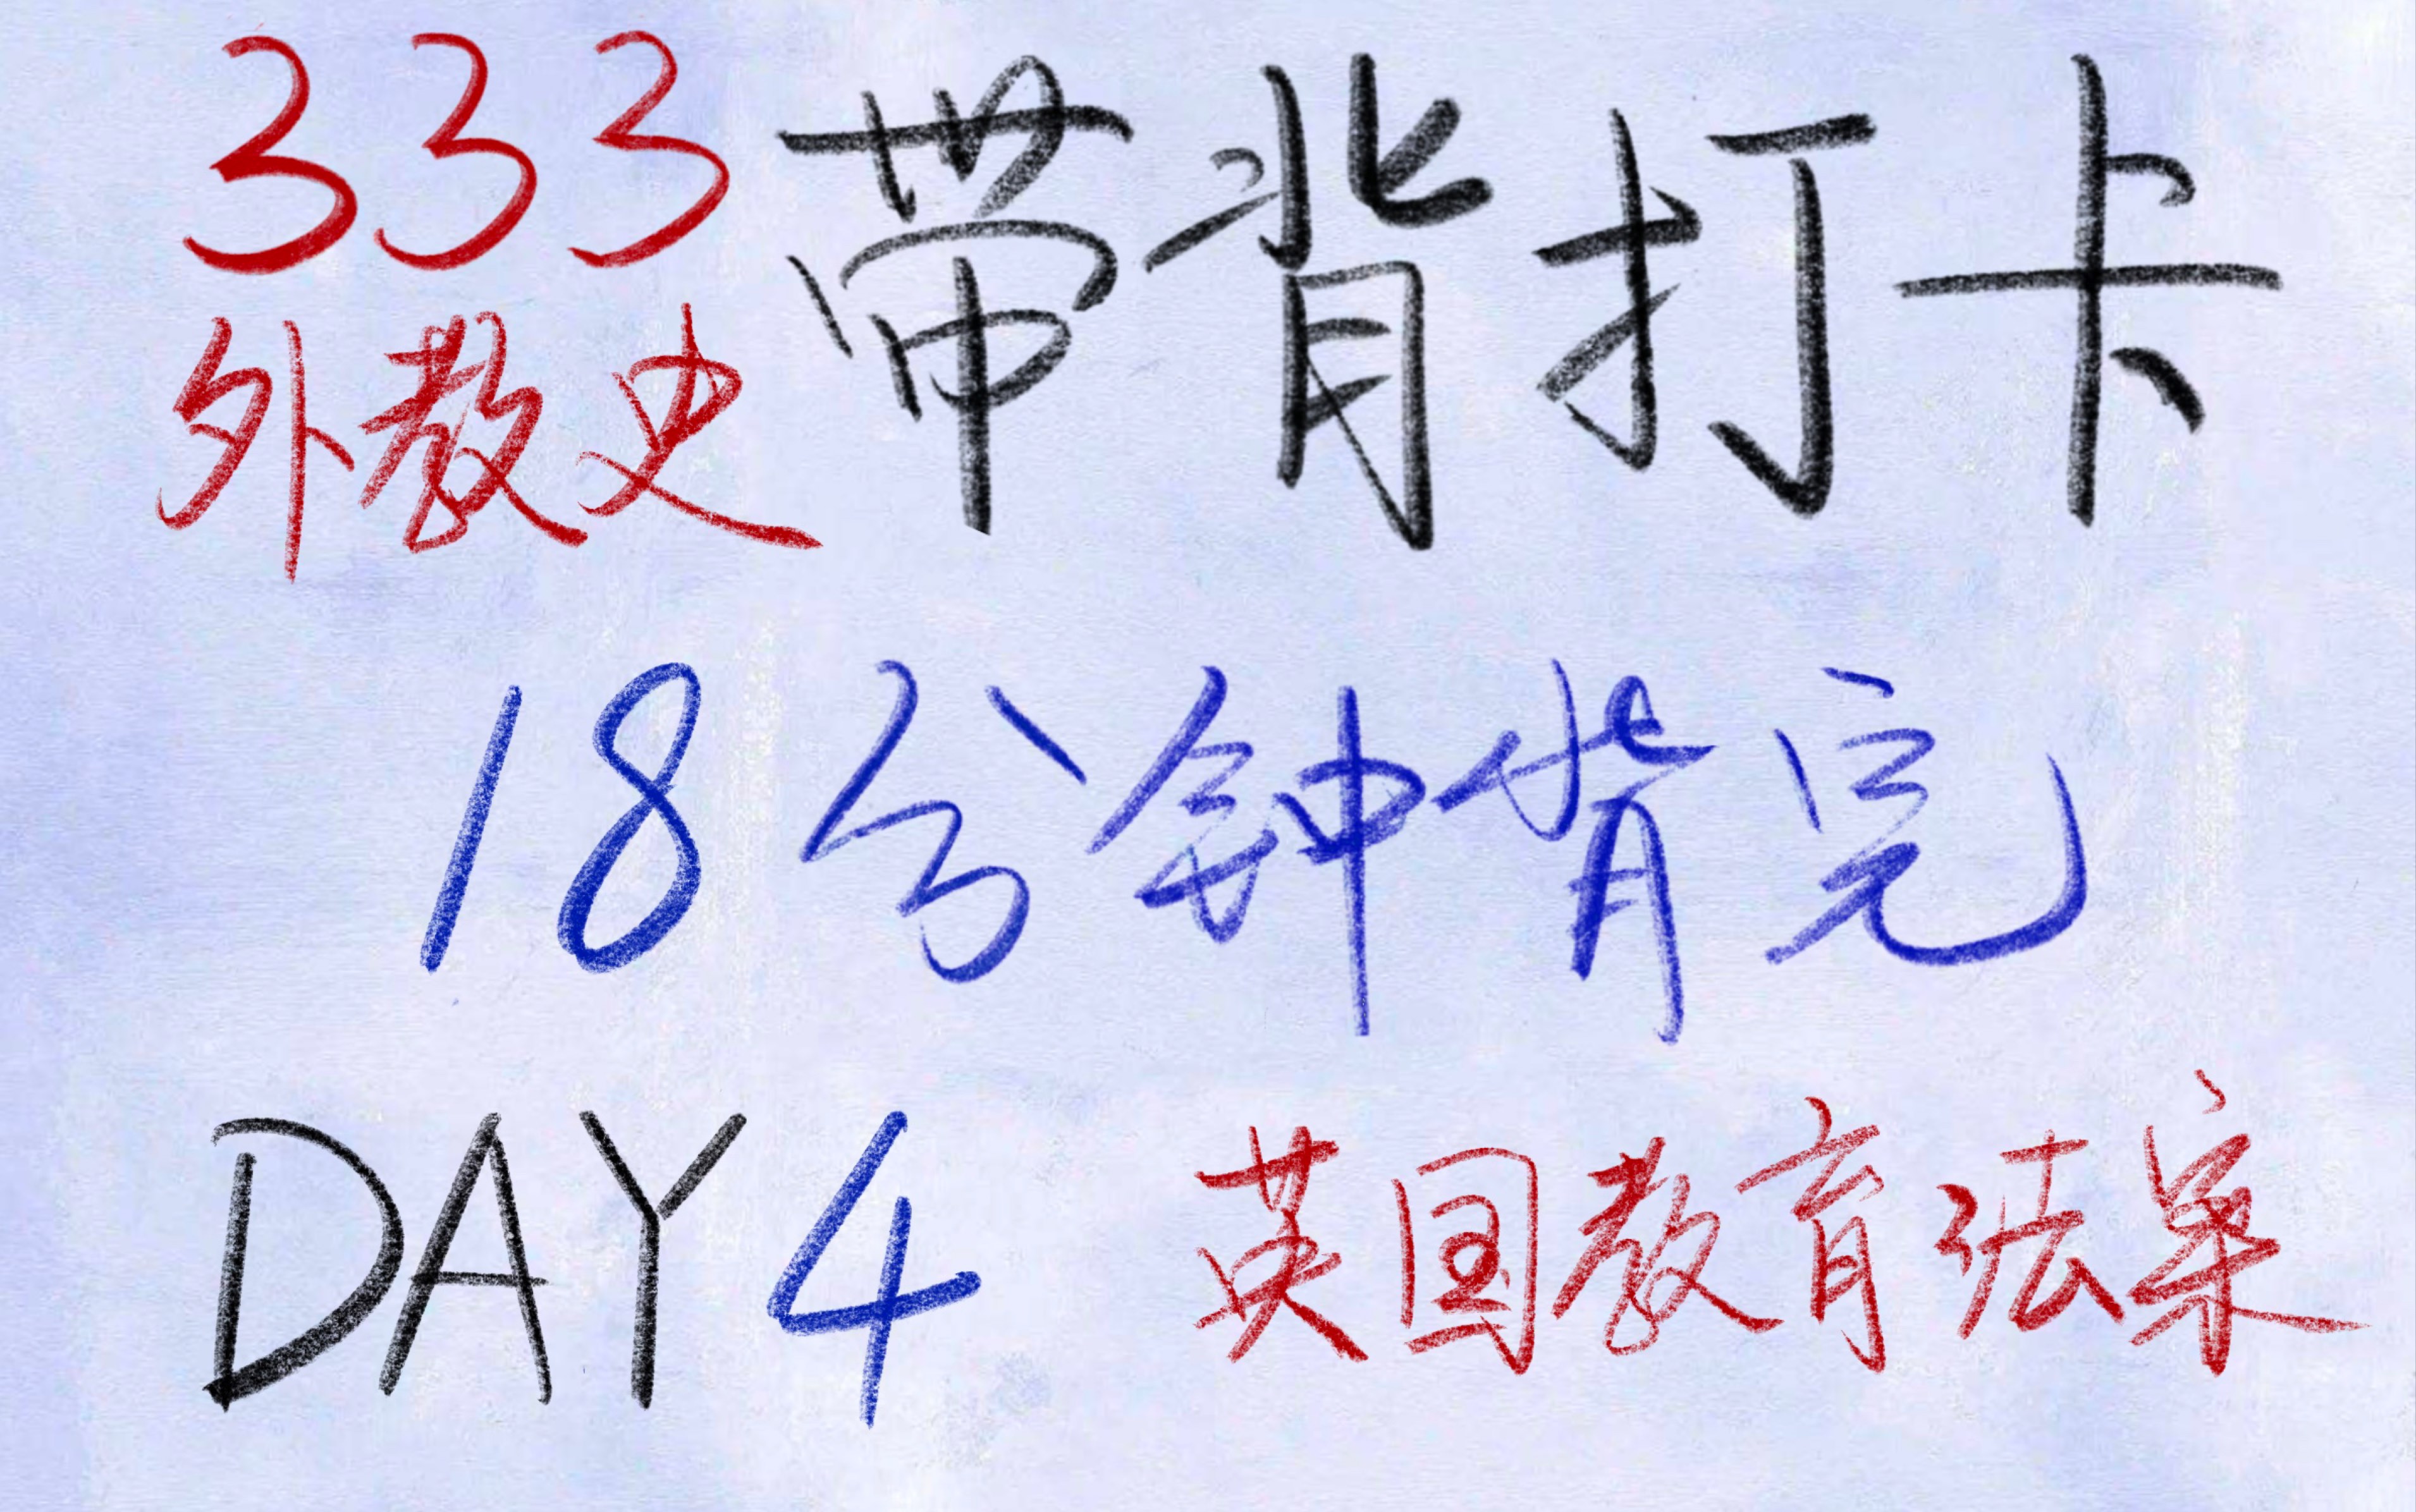 333 带背打卡
外教史
18分钟背完
DAY4 英国教育法案